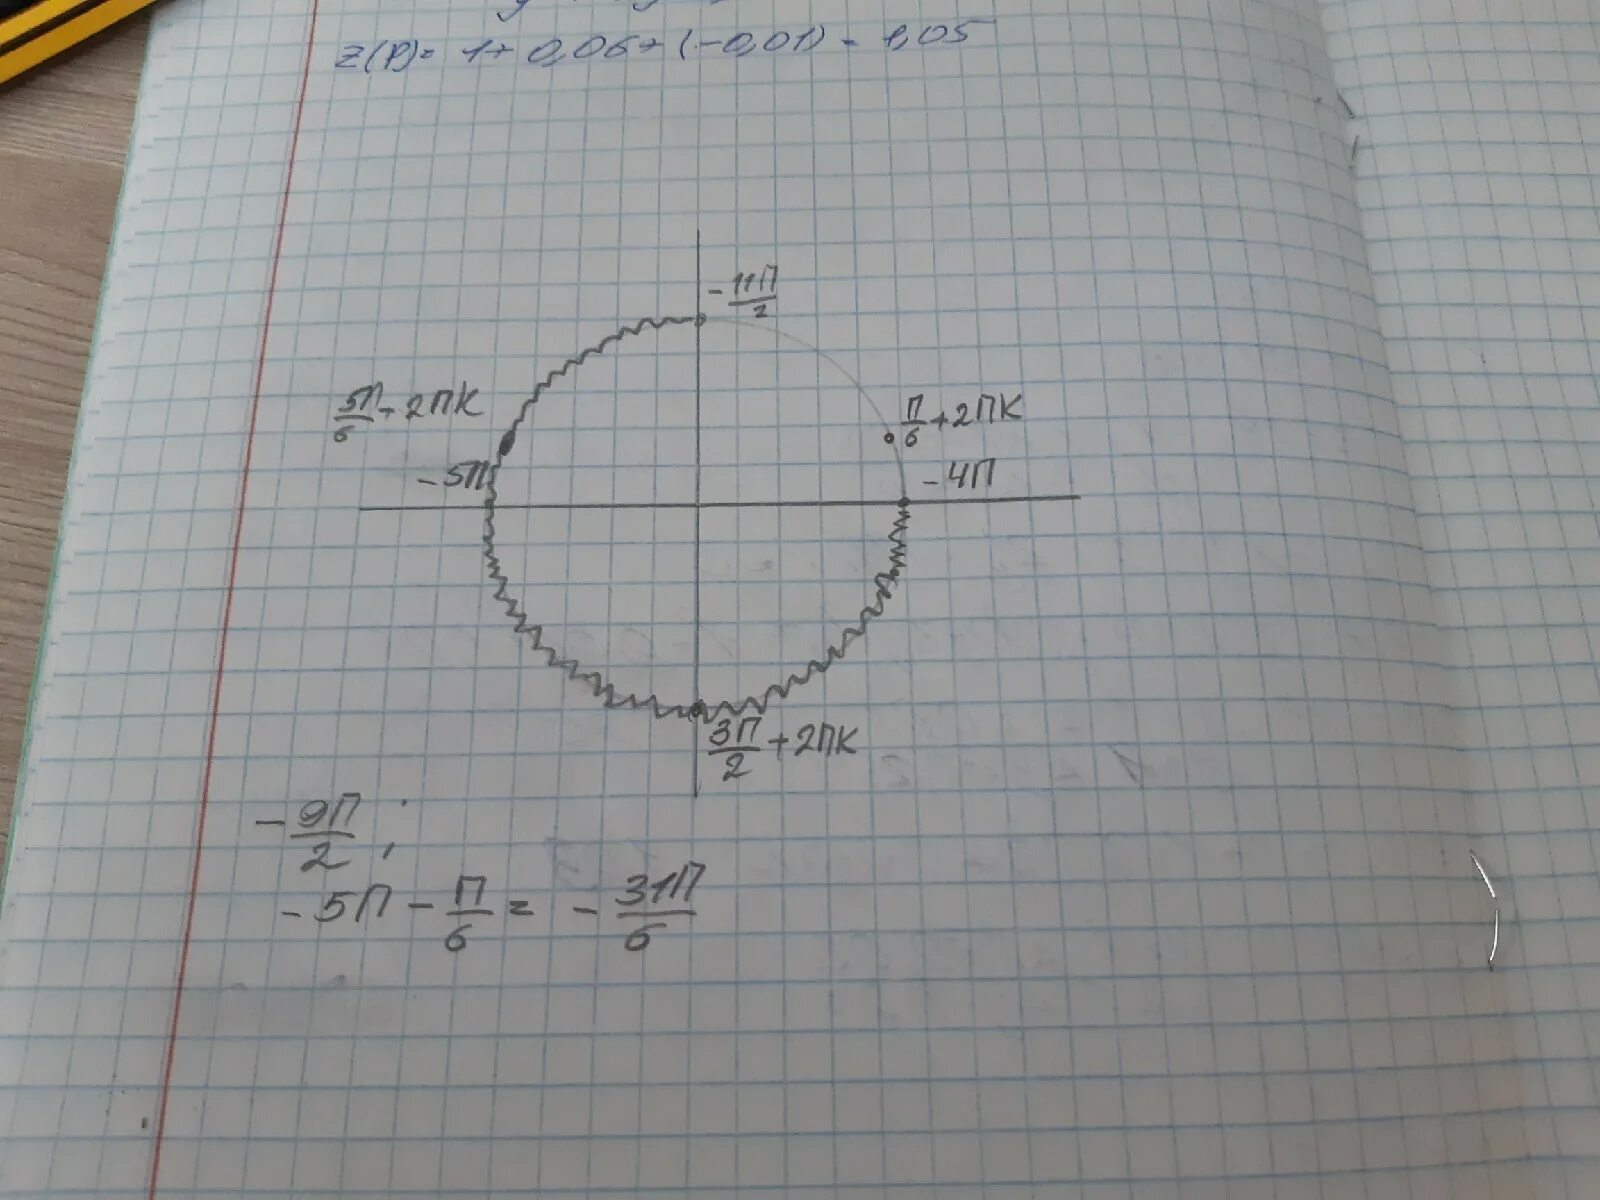 z(P)= 1+ 0,06+ (-0,01) = 1,05
- 11П/2
5П/6 + 2ПК
П/6 + 2ПК
- 5П
- 4П
3П/2 + 2ПК
- 9П/2 ;
- 5П - П/6 = - 31П/6